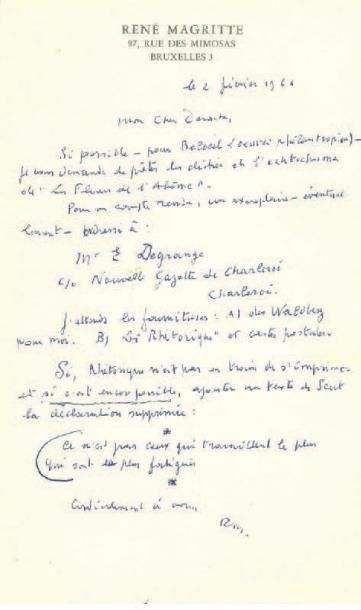 RENÉ MAGRITTE
97, RUE DES MIMOSAS
BRUXELLES 3
le 2 février 196
Mon cher
Si possible – pour Beloeil (oeuvre philantropique) –
je vous demande de prêter les clichés et l'
de "Les Fleurs de l'Abîme".
Pour un compte rendu, un exemplaire – éventuel
lement – adressé à :
Mr E Degrange
c/o Nouvelle Gazette de Charleroi
Charleroi.
J'attends les fournitures : A) des Waldberg
pour moi. B) "Rhétorique" et cartes postales.
Si, Rhétorique n'est pas en train de s'imprimer
et si c'est encor possible, ajouter au texte de Scut
la déclaration supprimée :
Ce n'est pas ceux qui travaillent le plus
qui sont les plus fatigués
*
*
Cordialement à vous,
RM.